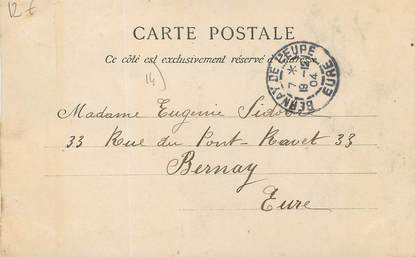 12 €
CARTE POSTALE
Ce côté est exclusivement réservé à
14)
BERNAY DE L'EURE EURE
7 * 19 -12 04
Madame Eugenie
33 Rue du Pont-Ravet 33
Bernay
Eure